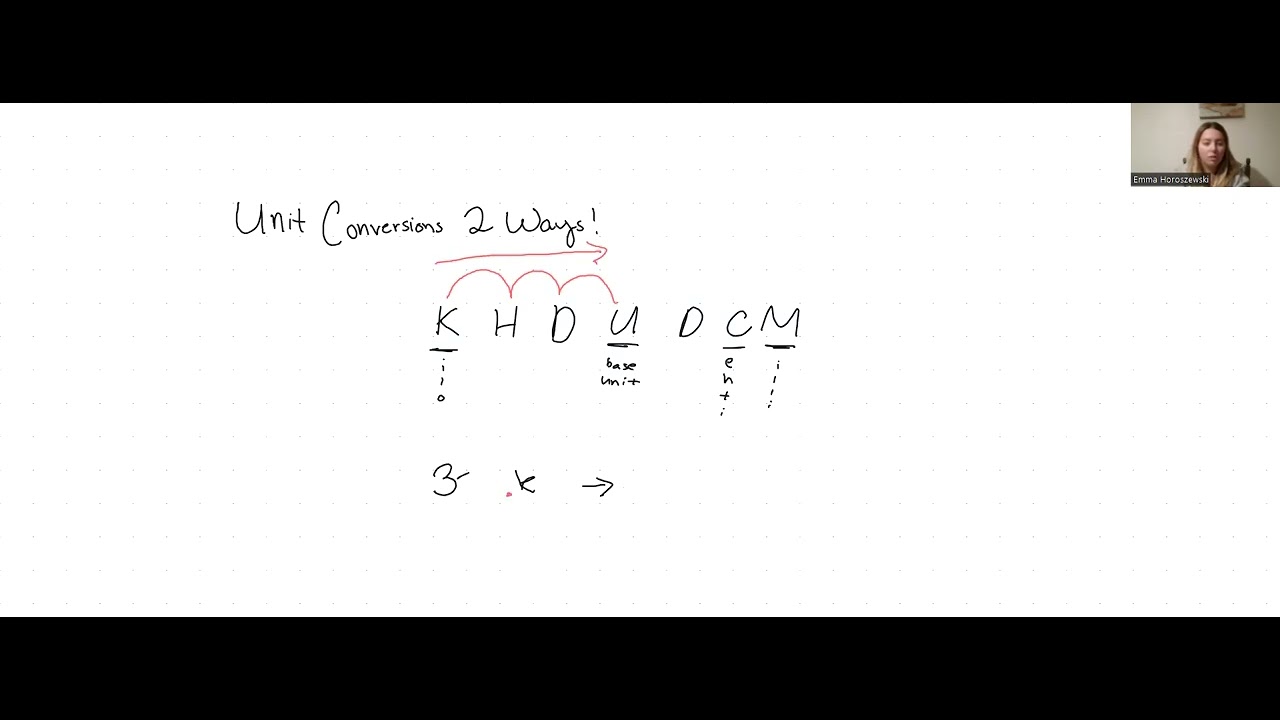 Emma Horoszewski
Unit Conversions 2 Ways!
K H D U D C M
i l o
base
unit
e n t i
i l l i
3 . k →